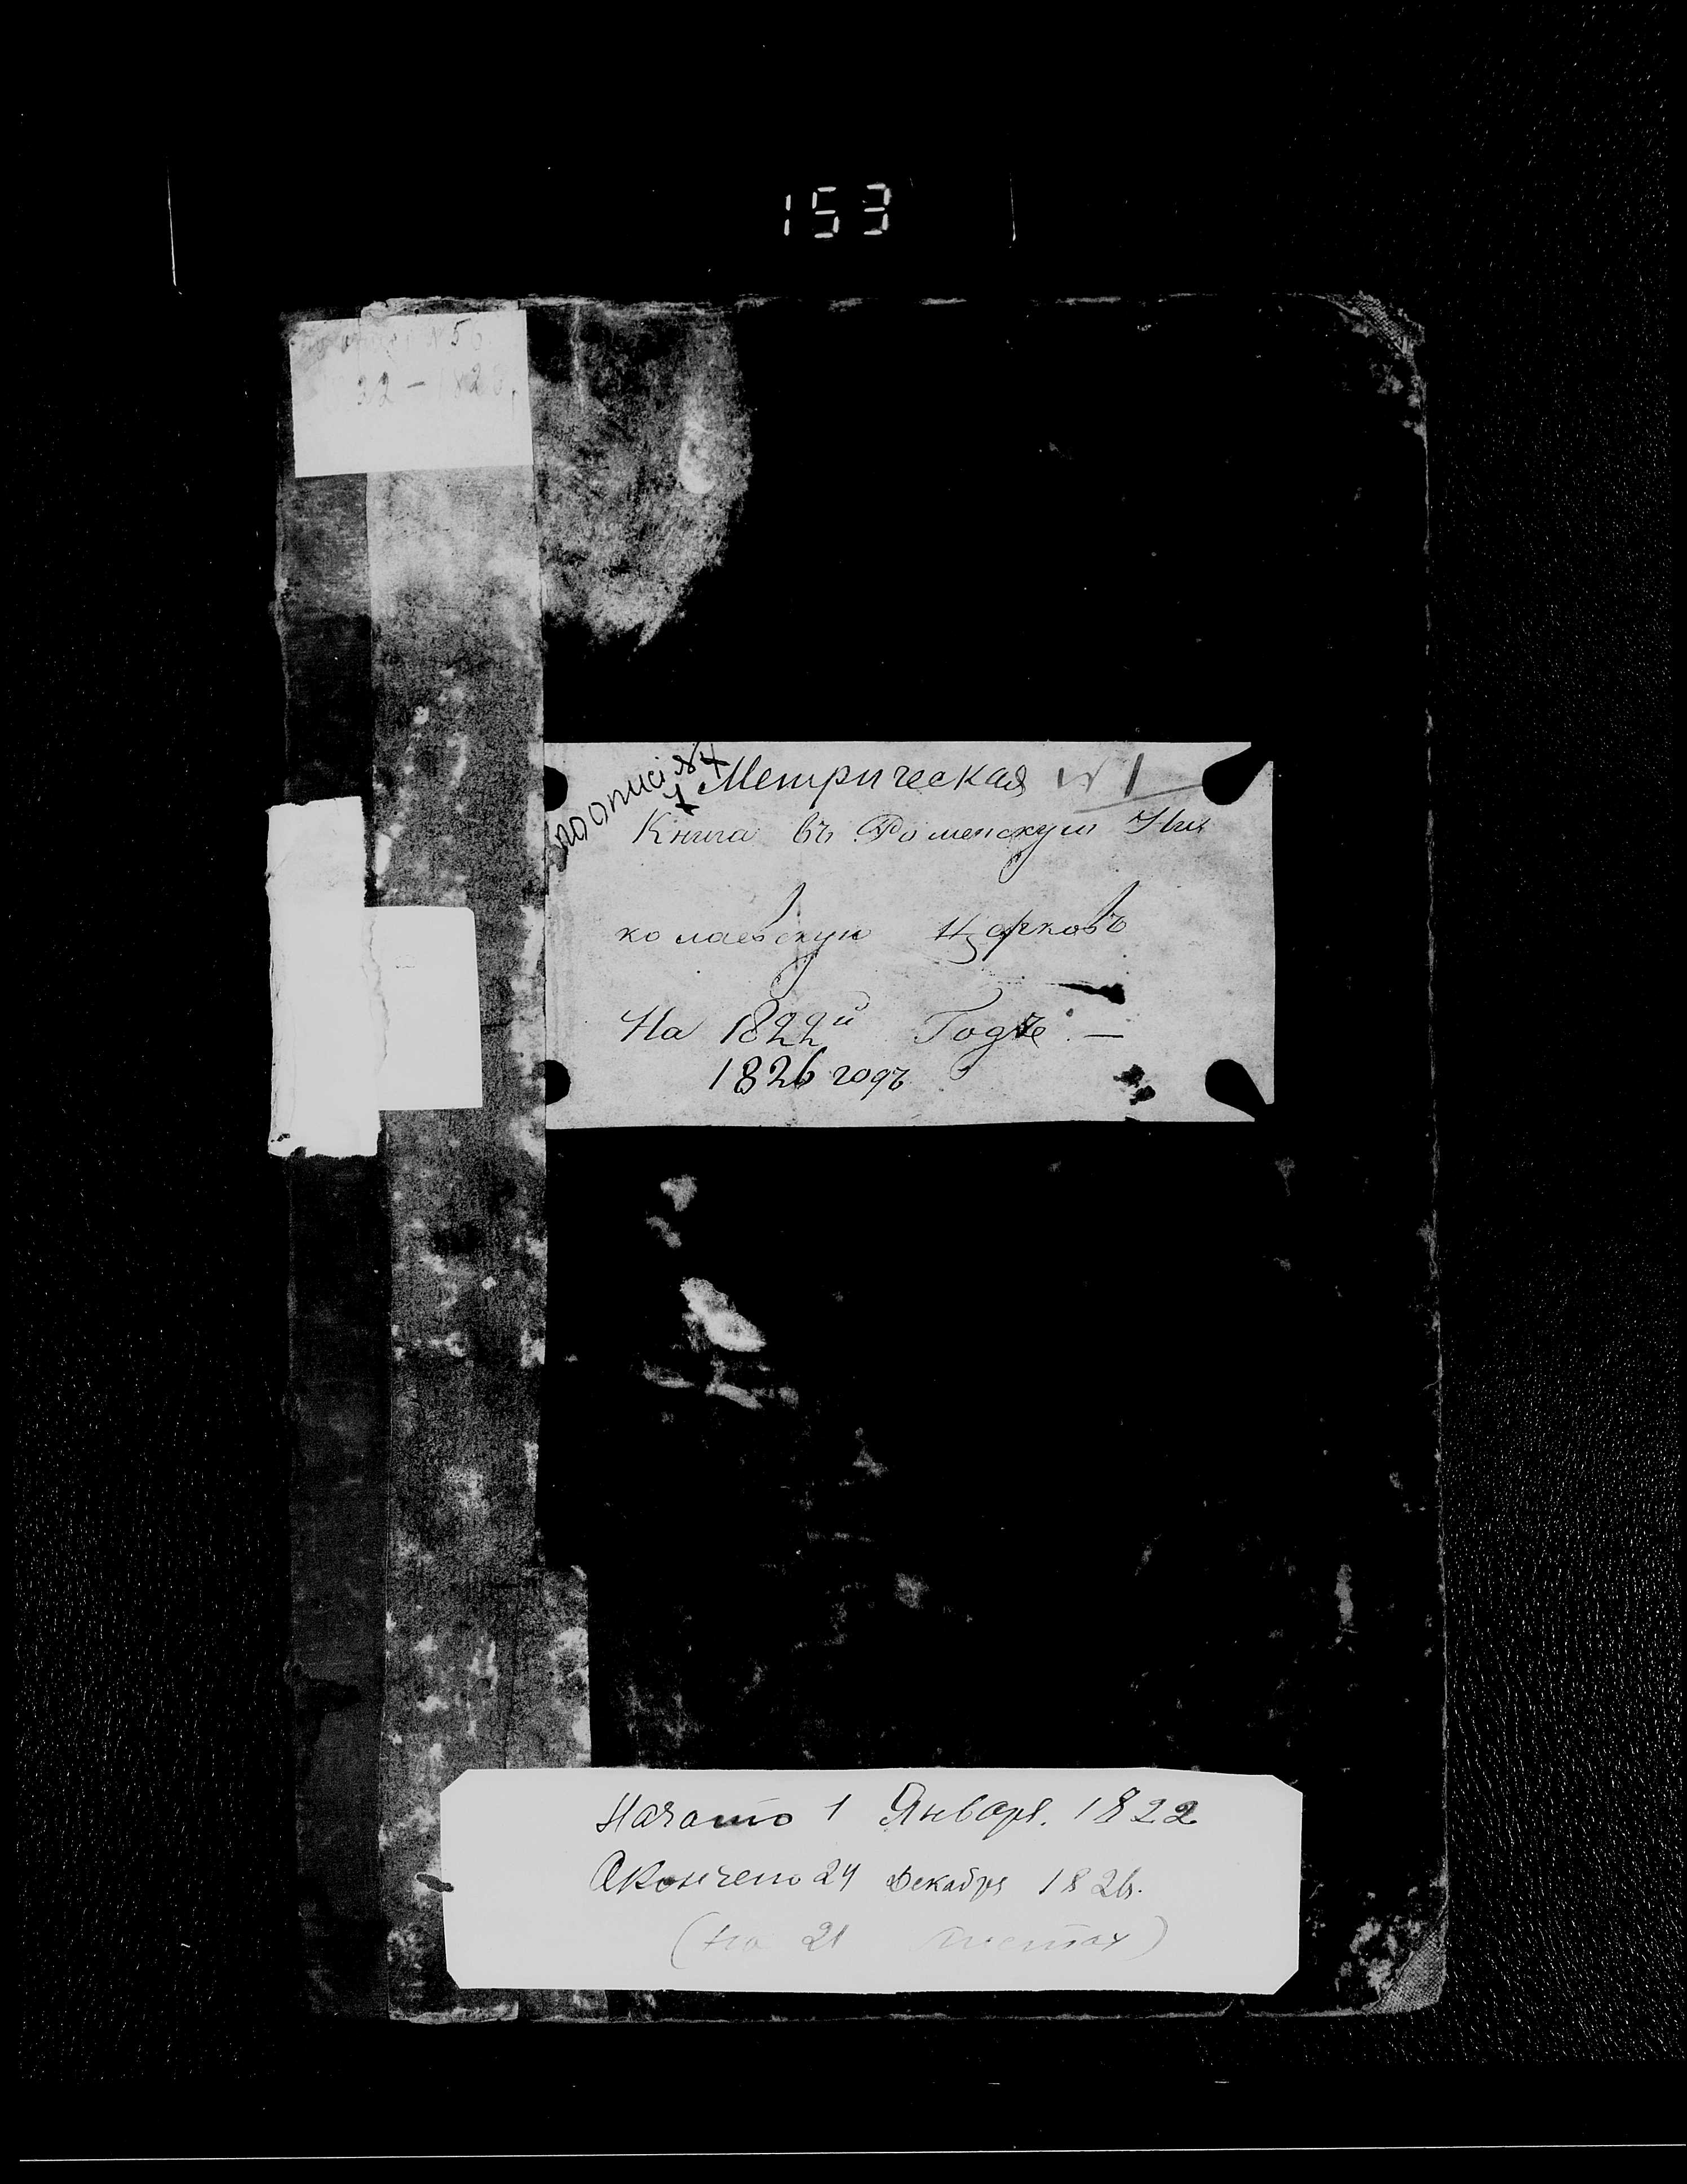 153
описі № 50
1822 - 1826
по описі № 4
1
Метрическая № 1
Книга въ Роменскую Ни
колаевскую Церковъ
На 1822й Годъ. —
1826 годъ
Начато 1 Января. 1822
Окончено 24 Декабря 1826.
(на 21 листах)